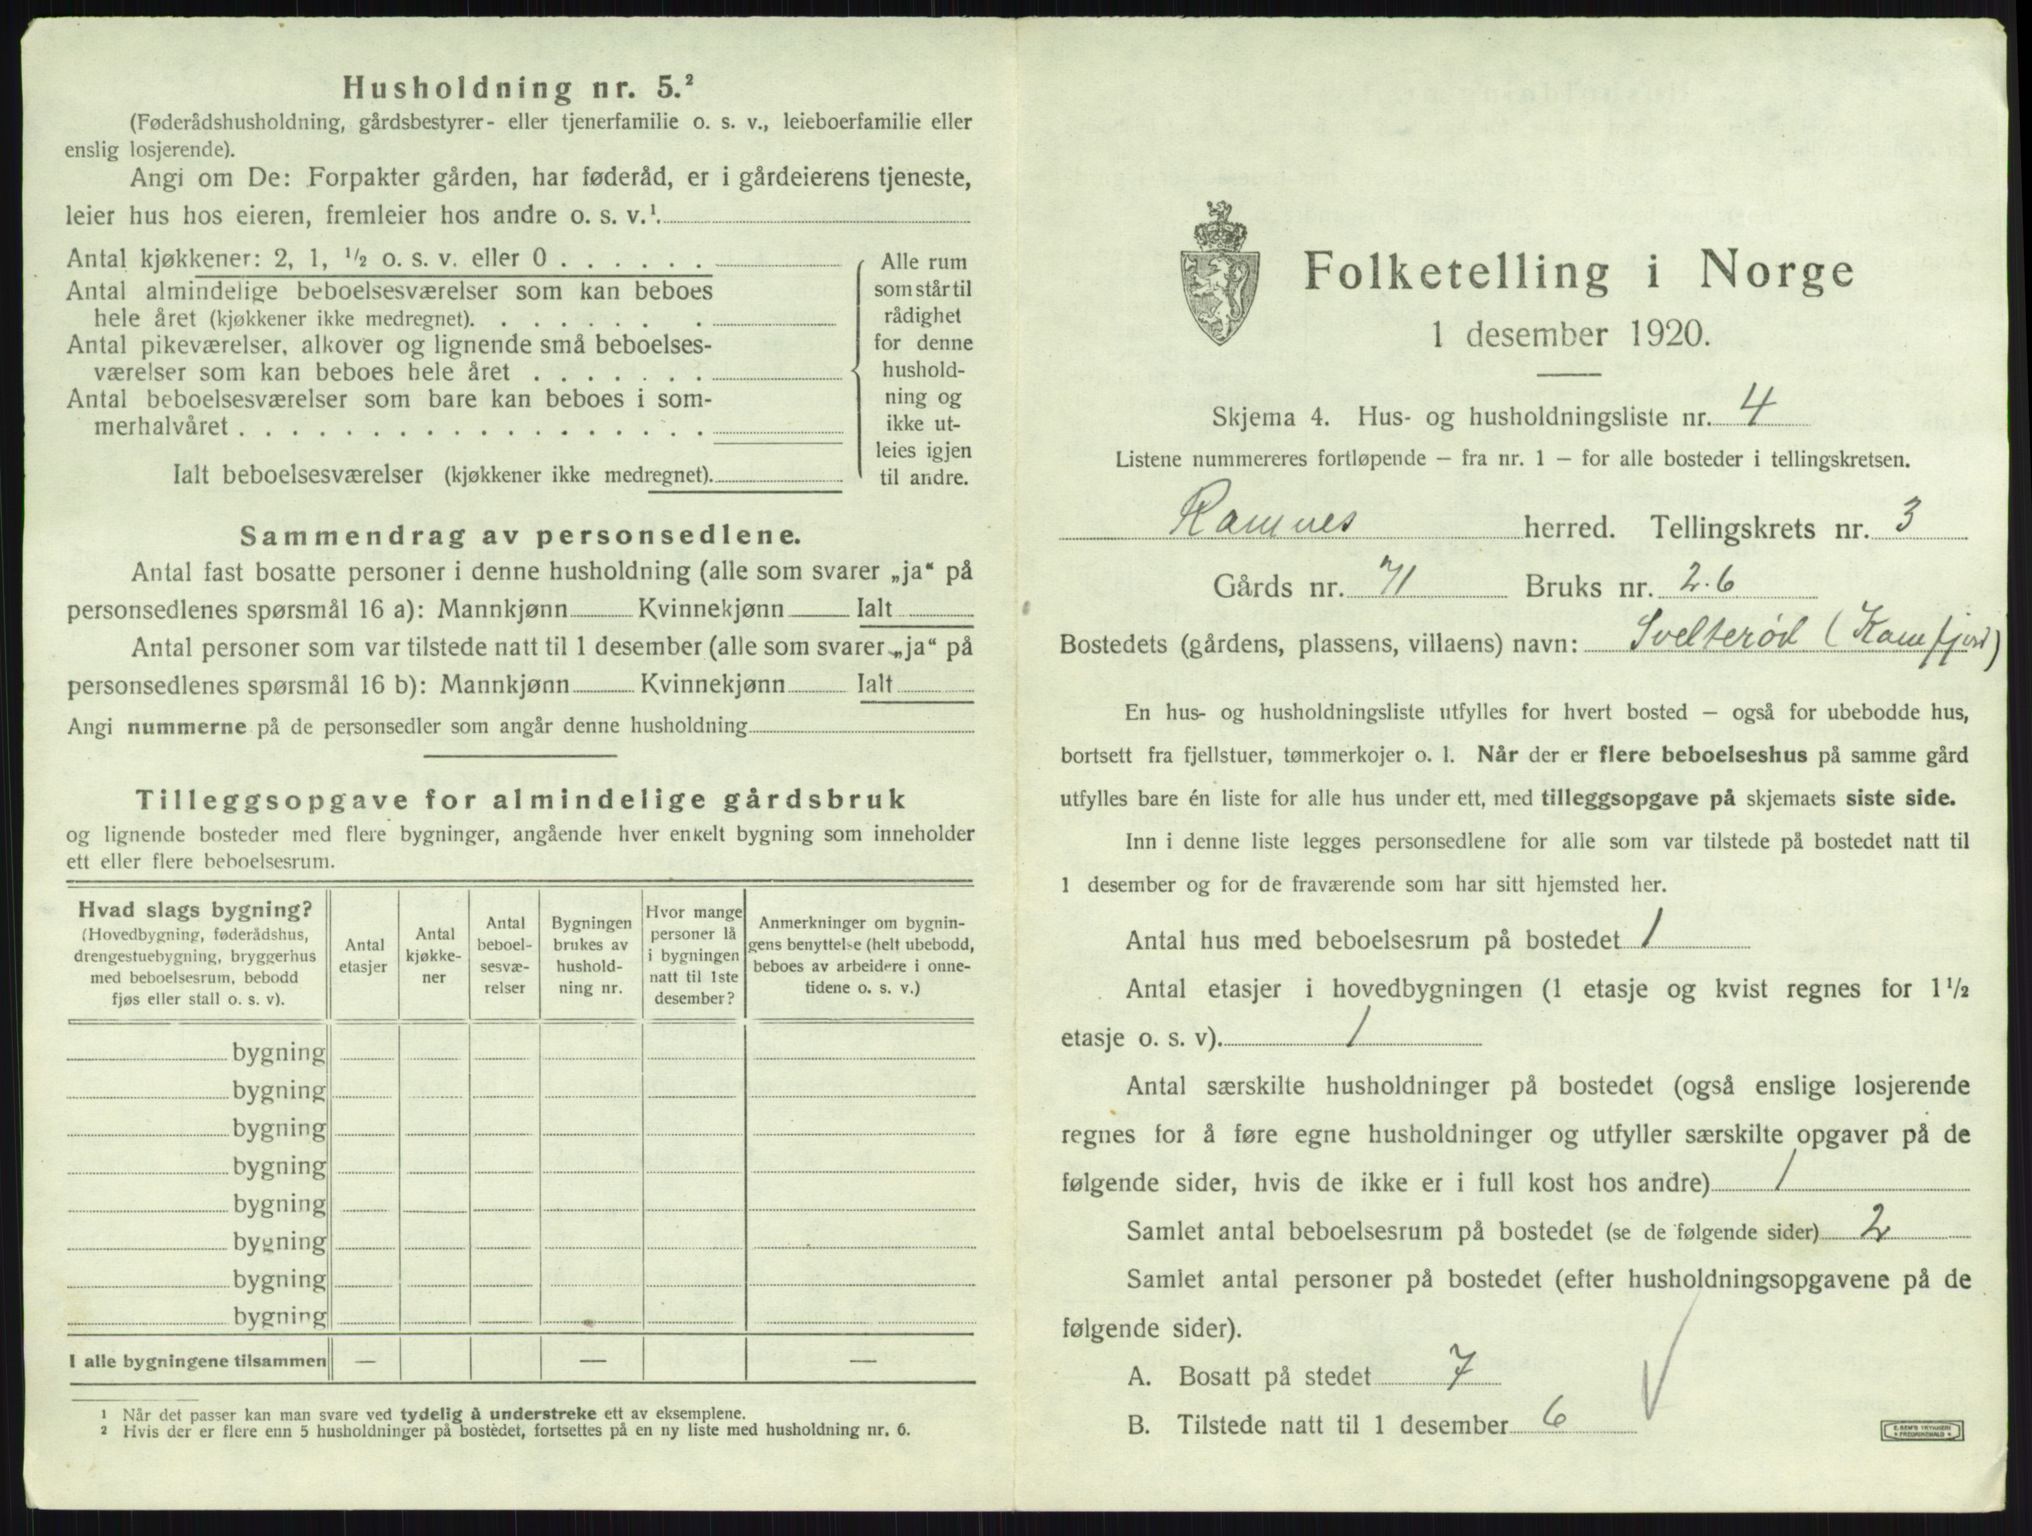 Husholdning nr. 5.²
(Føderådshusholdning, gårdsbestyrer- eller tjenerfamilie o. s. v., leieboerfamilie eller
enslig losjerende).
Angi om De: Forpakter gården, har føderåd, er i gårdeierens tjeneste,
leier hus hos eieren, fremleier hos andre o. s. v.¹
Antal kjøkkener: 2, 1, ½ o. s. v. eller 0 . . . . . .
Antal almindelige beboelsesværelser som kan beboes
hele året (kjøkkener ikke medregnet). . . . . . . .
Antal pikeværelser, alkover og lignende små beboelses-
værelser som kan beboes hele året . . . . . . .
Antal beboelsesværelser som bare kan beboes i som-
merhalvåret . . . . . . . . . . . . . . . . . .
Ialt beboelsesværelser (kjøkkener ikke medregnet).
Alle rum
som står til
rådighet
for denne
hushold-
ning og
ikke ut-
leies igjen
til andre.
Sammendrag av personsedlene.
Antal fast bosatte personer i denne husholdning (alle som svarer „ja“ på
personsedlenes spørsmål 16 a): Mannkjønn Kvinnekjønn Ialt
Antal personer som var tilstede natt til 1 desember (alle som svarer „ja“ på
personsedlenes spørsmål 16 b): Mannkjønn Kvinnekjønn Ialt
Angi nummerne på de personsedler som angår denne husholdning
Tilleggsopgave for almindelige gårdsbruk
og lignende bosteder med flere bygninger, angående hver enkelt bygning som inneholder
ett eller flere beboelsesrum.
Hvad slags bygning?
(Hovedbygning, føderådshus,
drengestuebygning, bryggerhus
med beboelsesrum, bebodd
fjøs eller stall o. s. v).
Antal
etasjer
Antal
kjøkke-
ner
Antal
beboel-
sesvæ-
relser
Bygningen
brukes av
hushold-
ning nr.
Hvor mange
personer lå
i bygningen
natt til 1ste
desember?
Anmerkninger om bygnin-
gens benyttelse (helt ubebodd,
beboes av arbeidere i onne-
tidene o. s. v.)
bygning
bygning
bygning
bygning
bygning
bygning
bygning
bygning
I alle bygningene tilsammen — — —
¹ Når det passer kan man svare ved tydelig å understreke ett av eksemplene.
² Hvis der er flere enn 5 husholdninger på bostedet, fortsettes på en ny liste med husholdning nr. 6.
Folketelling i Norge
1 desember 1920.
Skjema 4. Hus- og husholdningsliste nr. 4
Listene nummereres fortløpende – fra nr. 1 – for alle bosteder i tellingskretsen.
Ramnes herred. Tellingskrets nr. 3
Gårds nr. 71 Bruks nr. 2.6
Bostedets (gårdens, plassens, villaens) navn: Svelterød (Kamfjord)
En hus- og husholdningsliste utfylles for hvert bosted – også for ubebodde hus,
bortsett fra fjellstuer, tømmerkojer o. l. Når der er flere beboelseshus på samme gård
utfylles bare én liste for alle hus under ett, med tilleggsopgave på skjemaets siste side.
Inn i denne liste legges personsedlene for alle som var tilstede på bostedet natt til
1 desember og for de fraværende som har sitt hjemsted her.
Antal hus med beboelsesrum på bostedet 1
Antal etasjer i hovedbygningen (1 etasje og kvist regnes for 1½
etasje o. s. v). 1
Antal særskilte husholdninger på bostedet (også enslige losjerende
regnes for å føre egne husholdninger og utfyller særskilte opgaver på de
følgende sider, hvis de ikke er i full kost hos andre) 1
Samlet antal beboelsesrum på bostedet (se de følgende sider) 2
Samlet antal personer på bostedet (efter husholdningsopgavene på de
følgende sider).
A. Bosatt på stedet 7
B. Tilstede natt til 1 desember 6